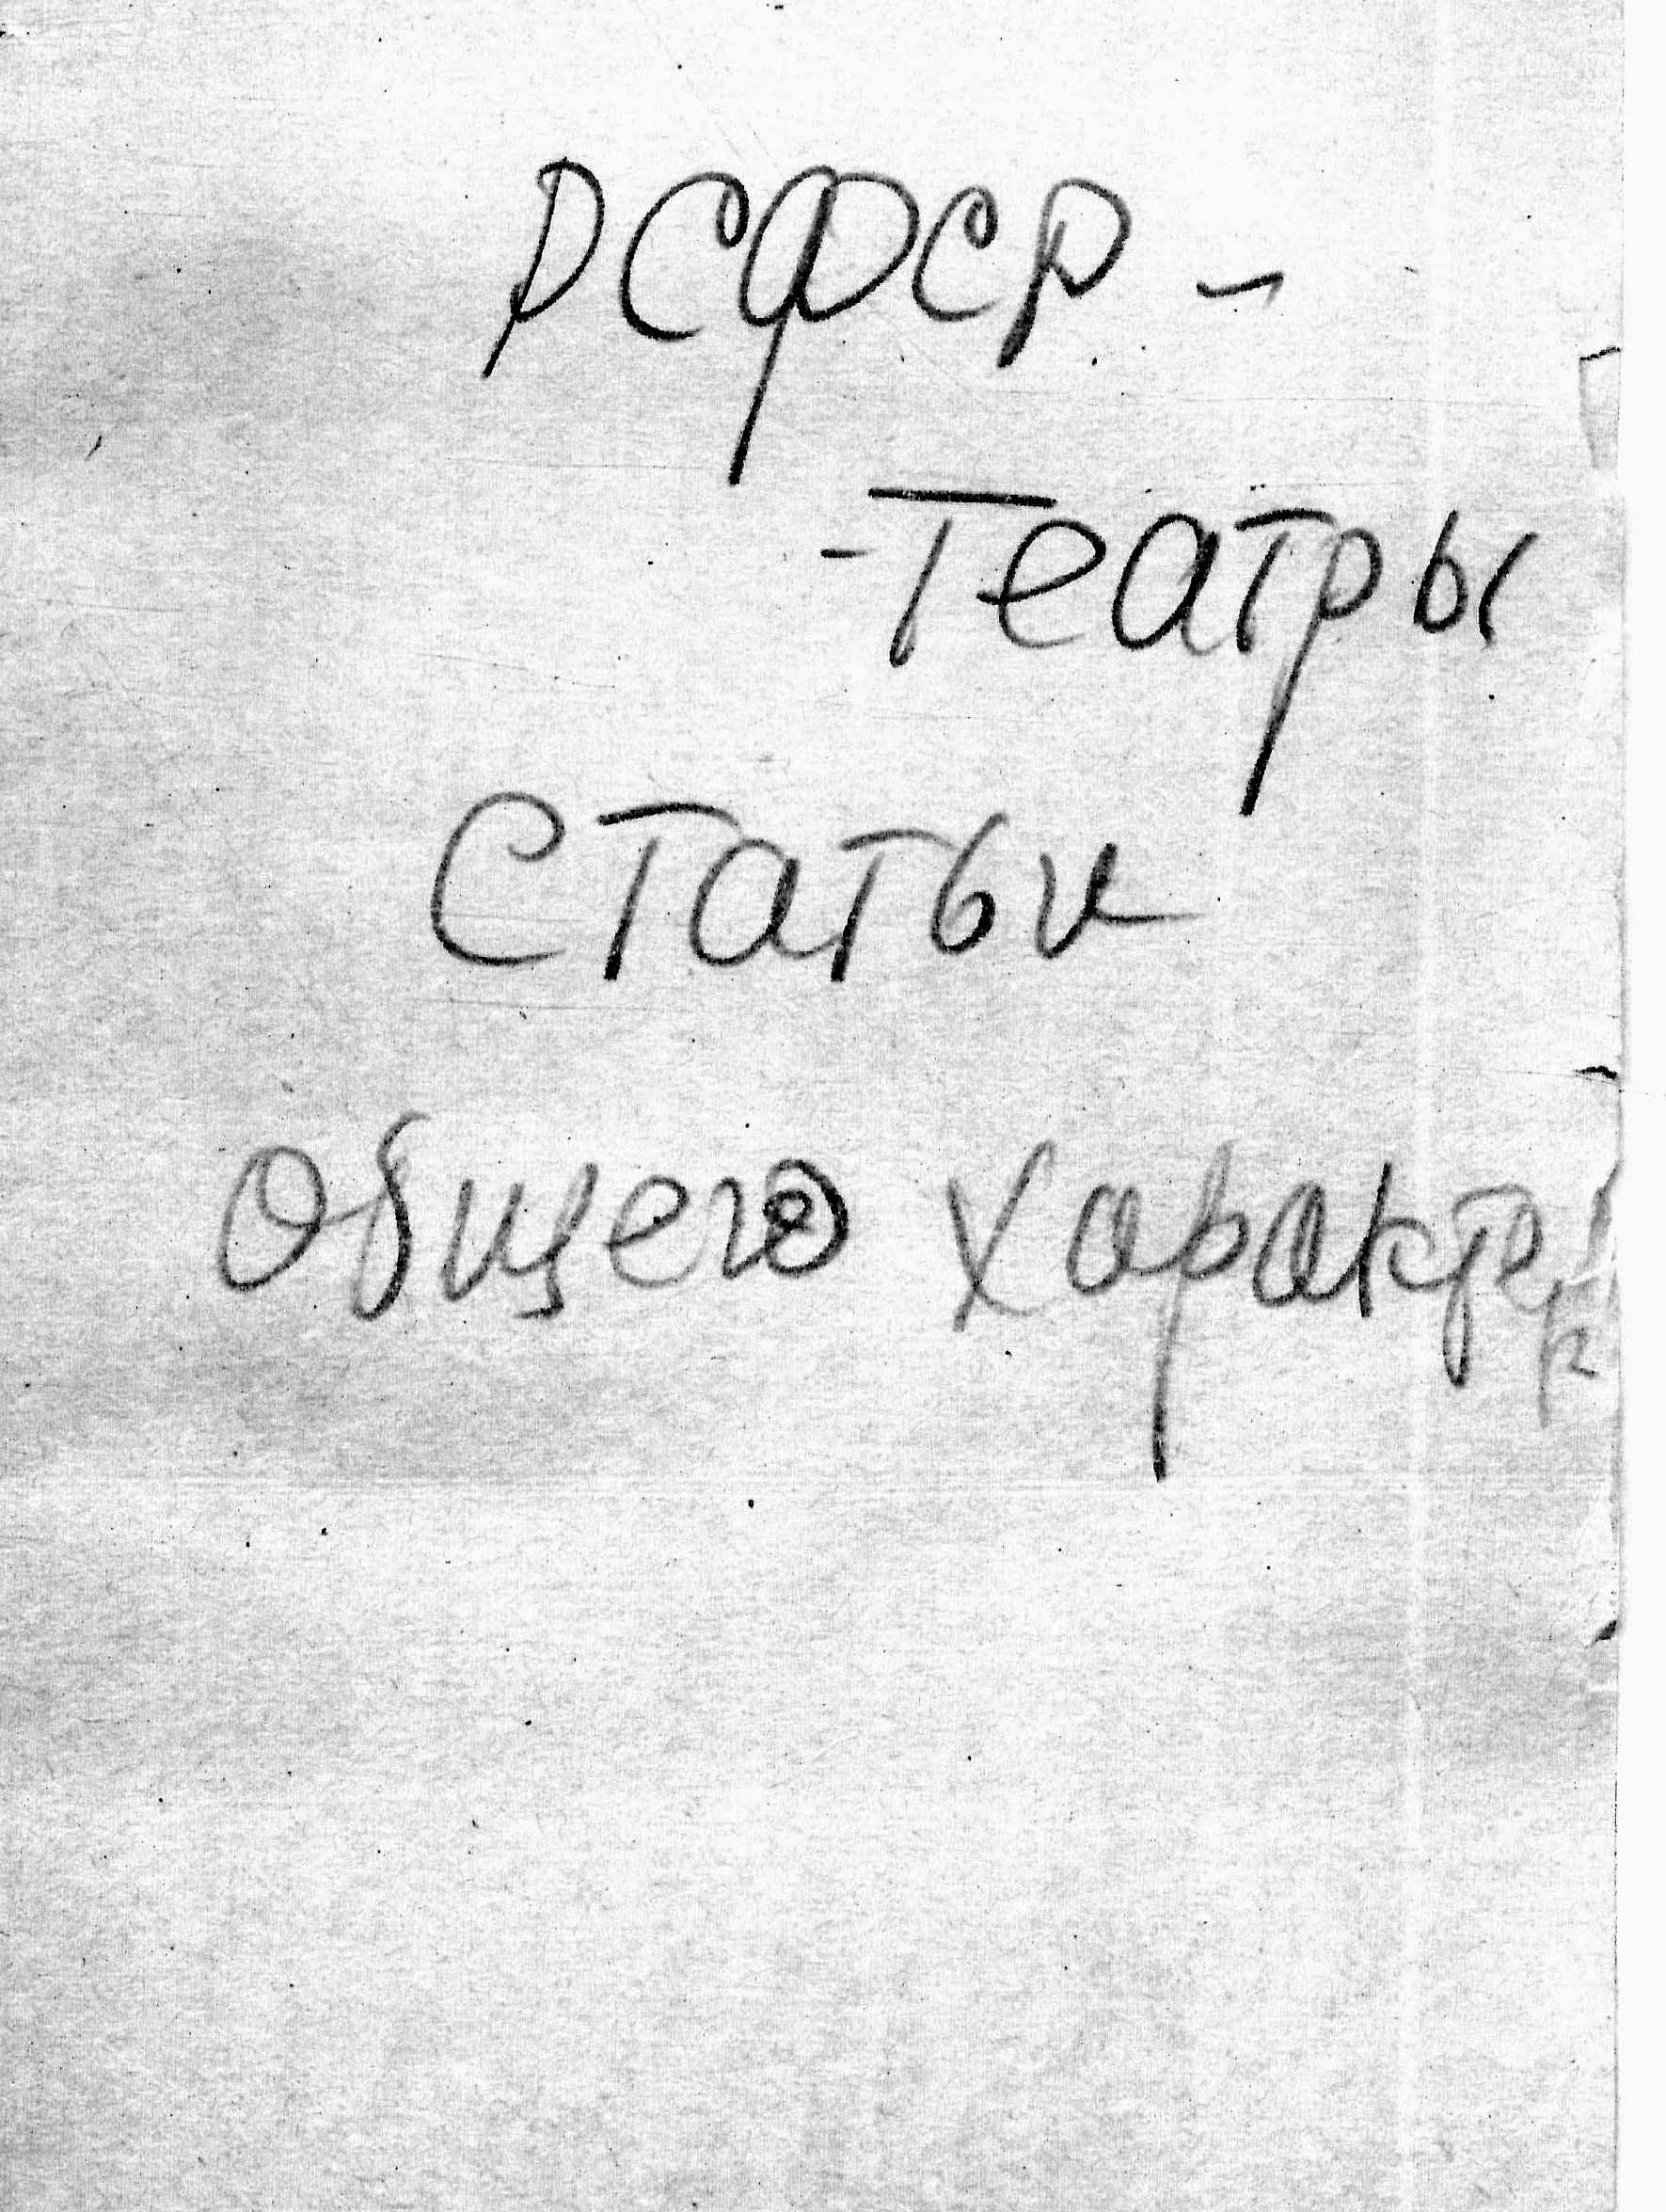 РСФСР -
- Театры
Статьи
Общего характера